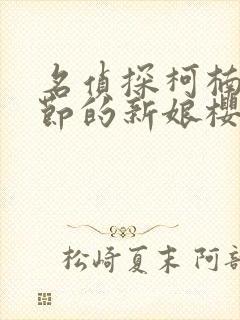 名偵探柯楠
節的新娘櫻
松崎夏末 阿部